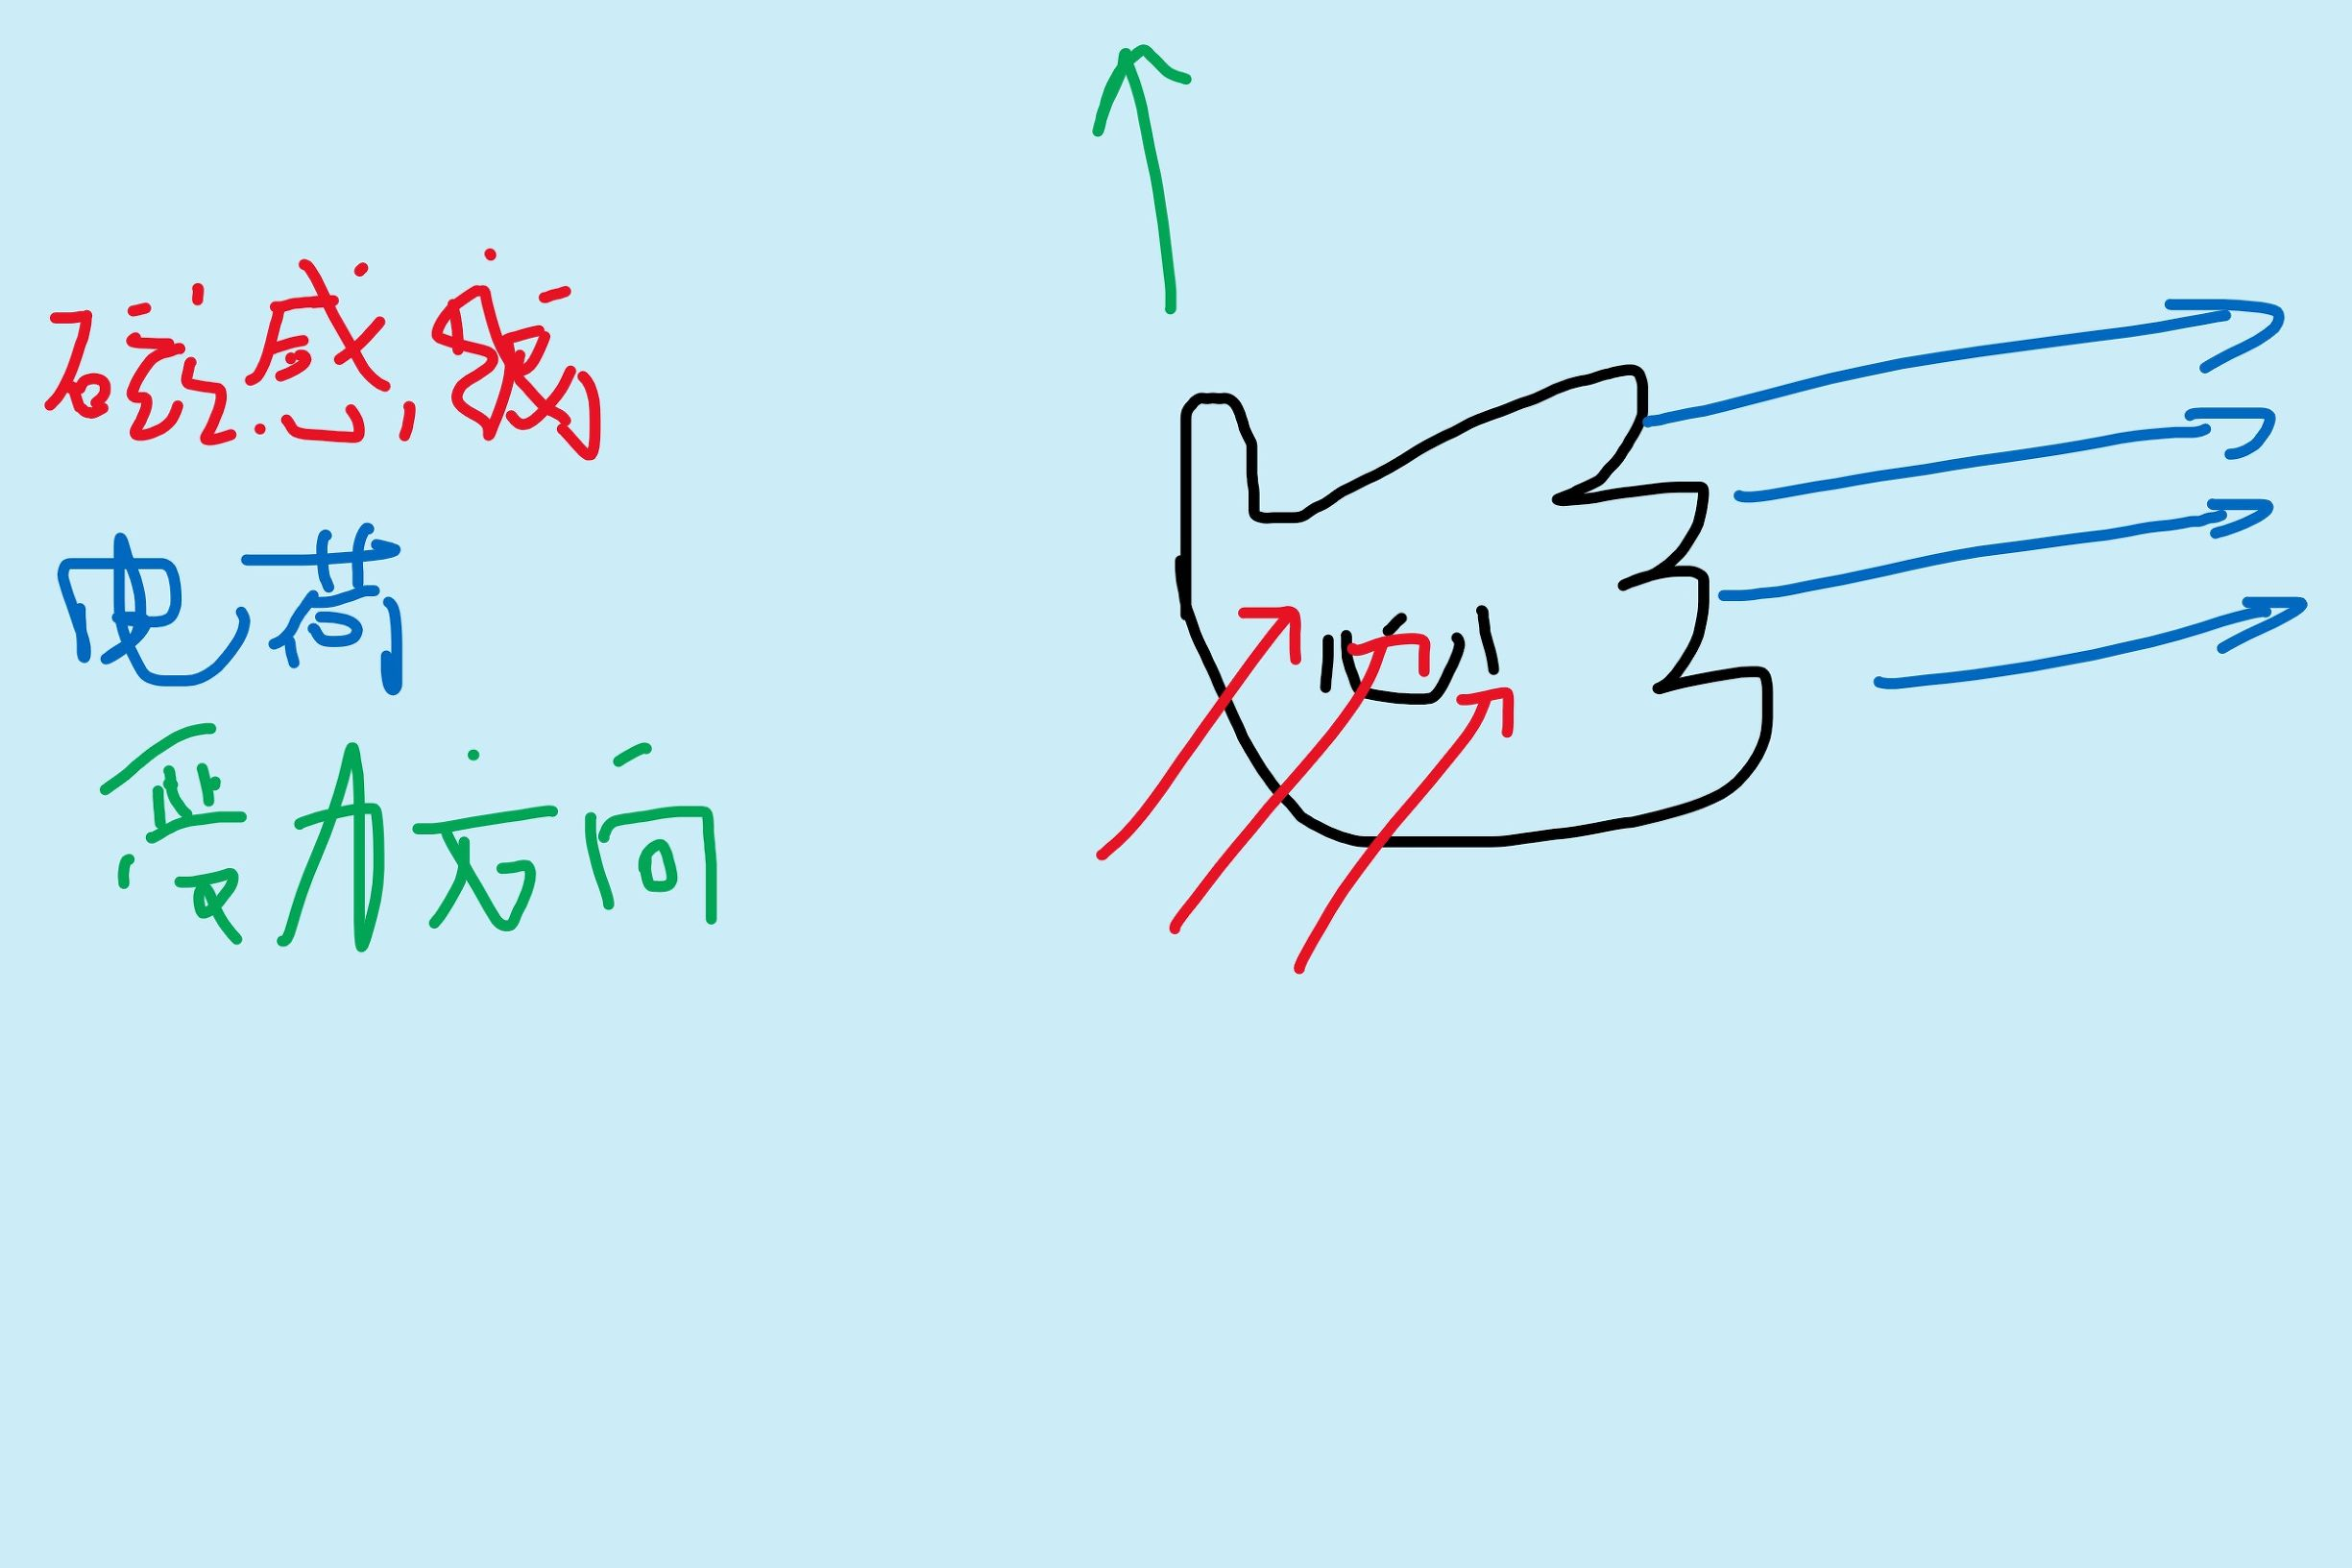 磁感线
电荷
受力方向
心